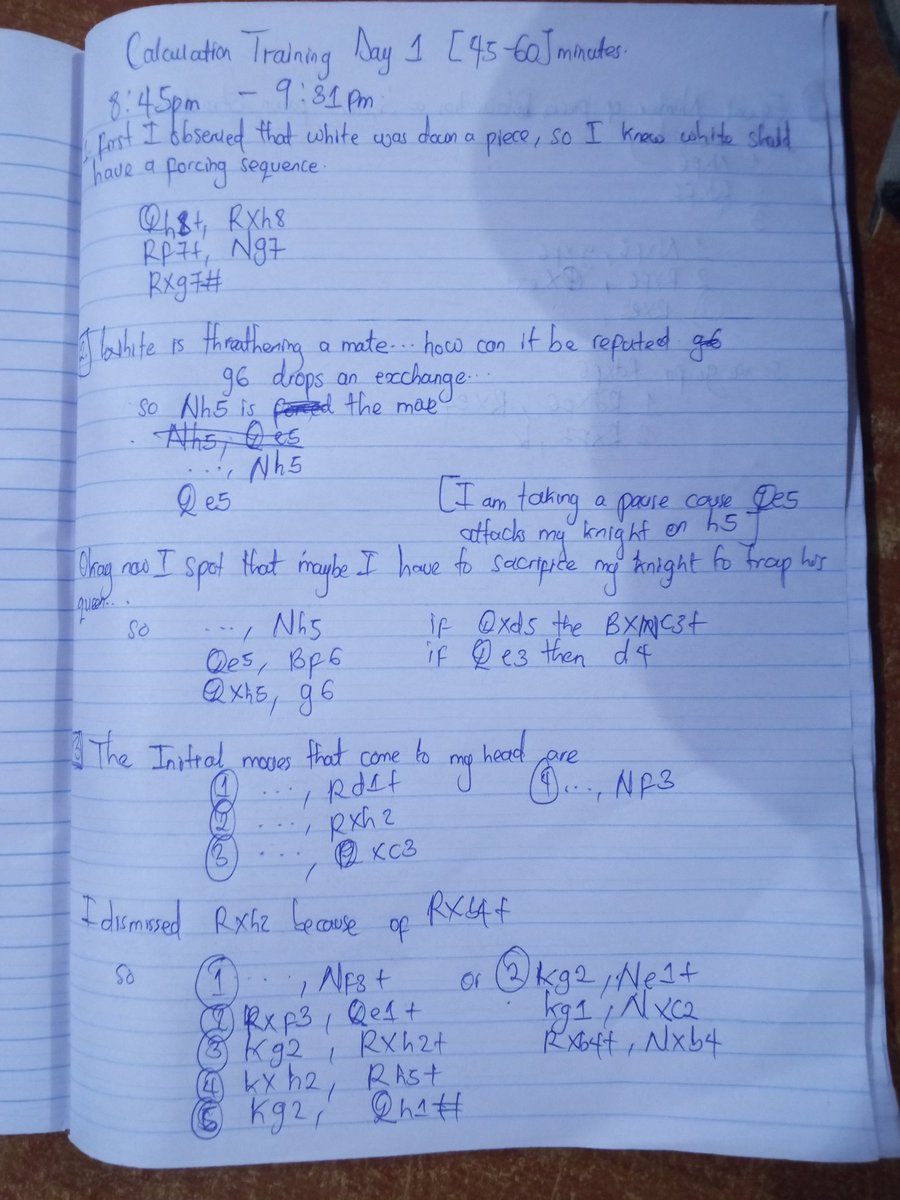 Calculation Training Day 1 [45-60] minutes.
8:45pm - 9:31pm
1, First I observed that white was down a piece, so I knew white should
have a forcing sequence.
Qh8+, RXh8
Rf7+, Ng7
RXg7#
2] White is threathening a mate... how can it be refuted g6
g6 drops an exchange...
so Nh5 is forced the move
Nh5, Qe5
..., Nh5
Qe5 [I am taking a pause cause Qe5
attacks my knight on h5]
Okay now I spot that maybe I have to sacrifice my knight to trap his
queen...
so ..., Nh5 if QXd5 the BXNC3+
Qe5, Bf6 if Qe3 then d4
QXh5, g6
3] The Initial moves that come to my head are
① ..., Rd1+ ④ ..., Nf3
② ..., RXh2
③ ..., QXc3
I dismissed RXh2 because of RXb4+
so ① ..., Nf3+ or ② Kg2, Ne1+
② RXf3, Qe1+ Kg1, NXC2
③ Kg2, RXh2+ RXb4+, NXb4
④ KXh2, Rh5+
⑤ Kg2, Qh1#